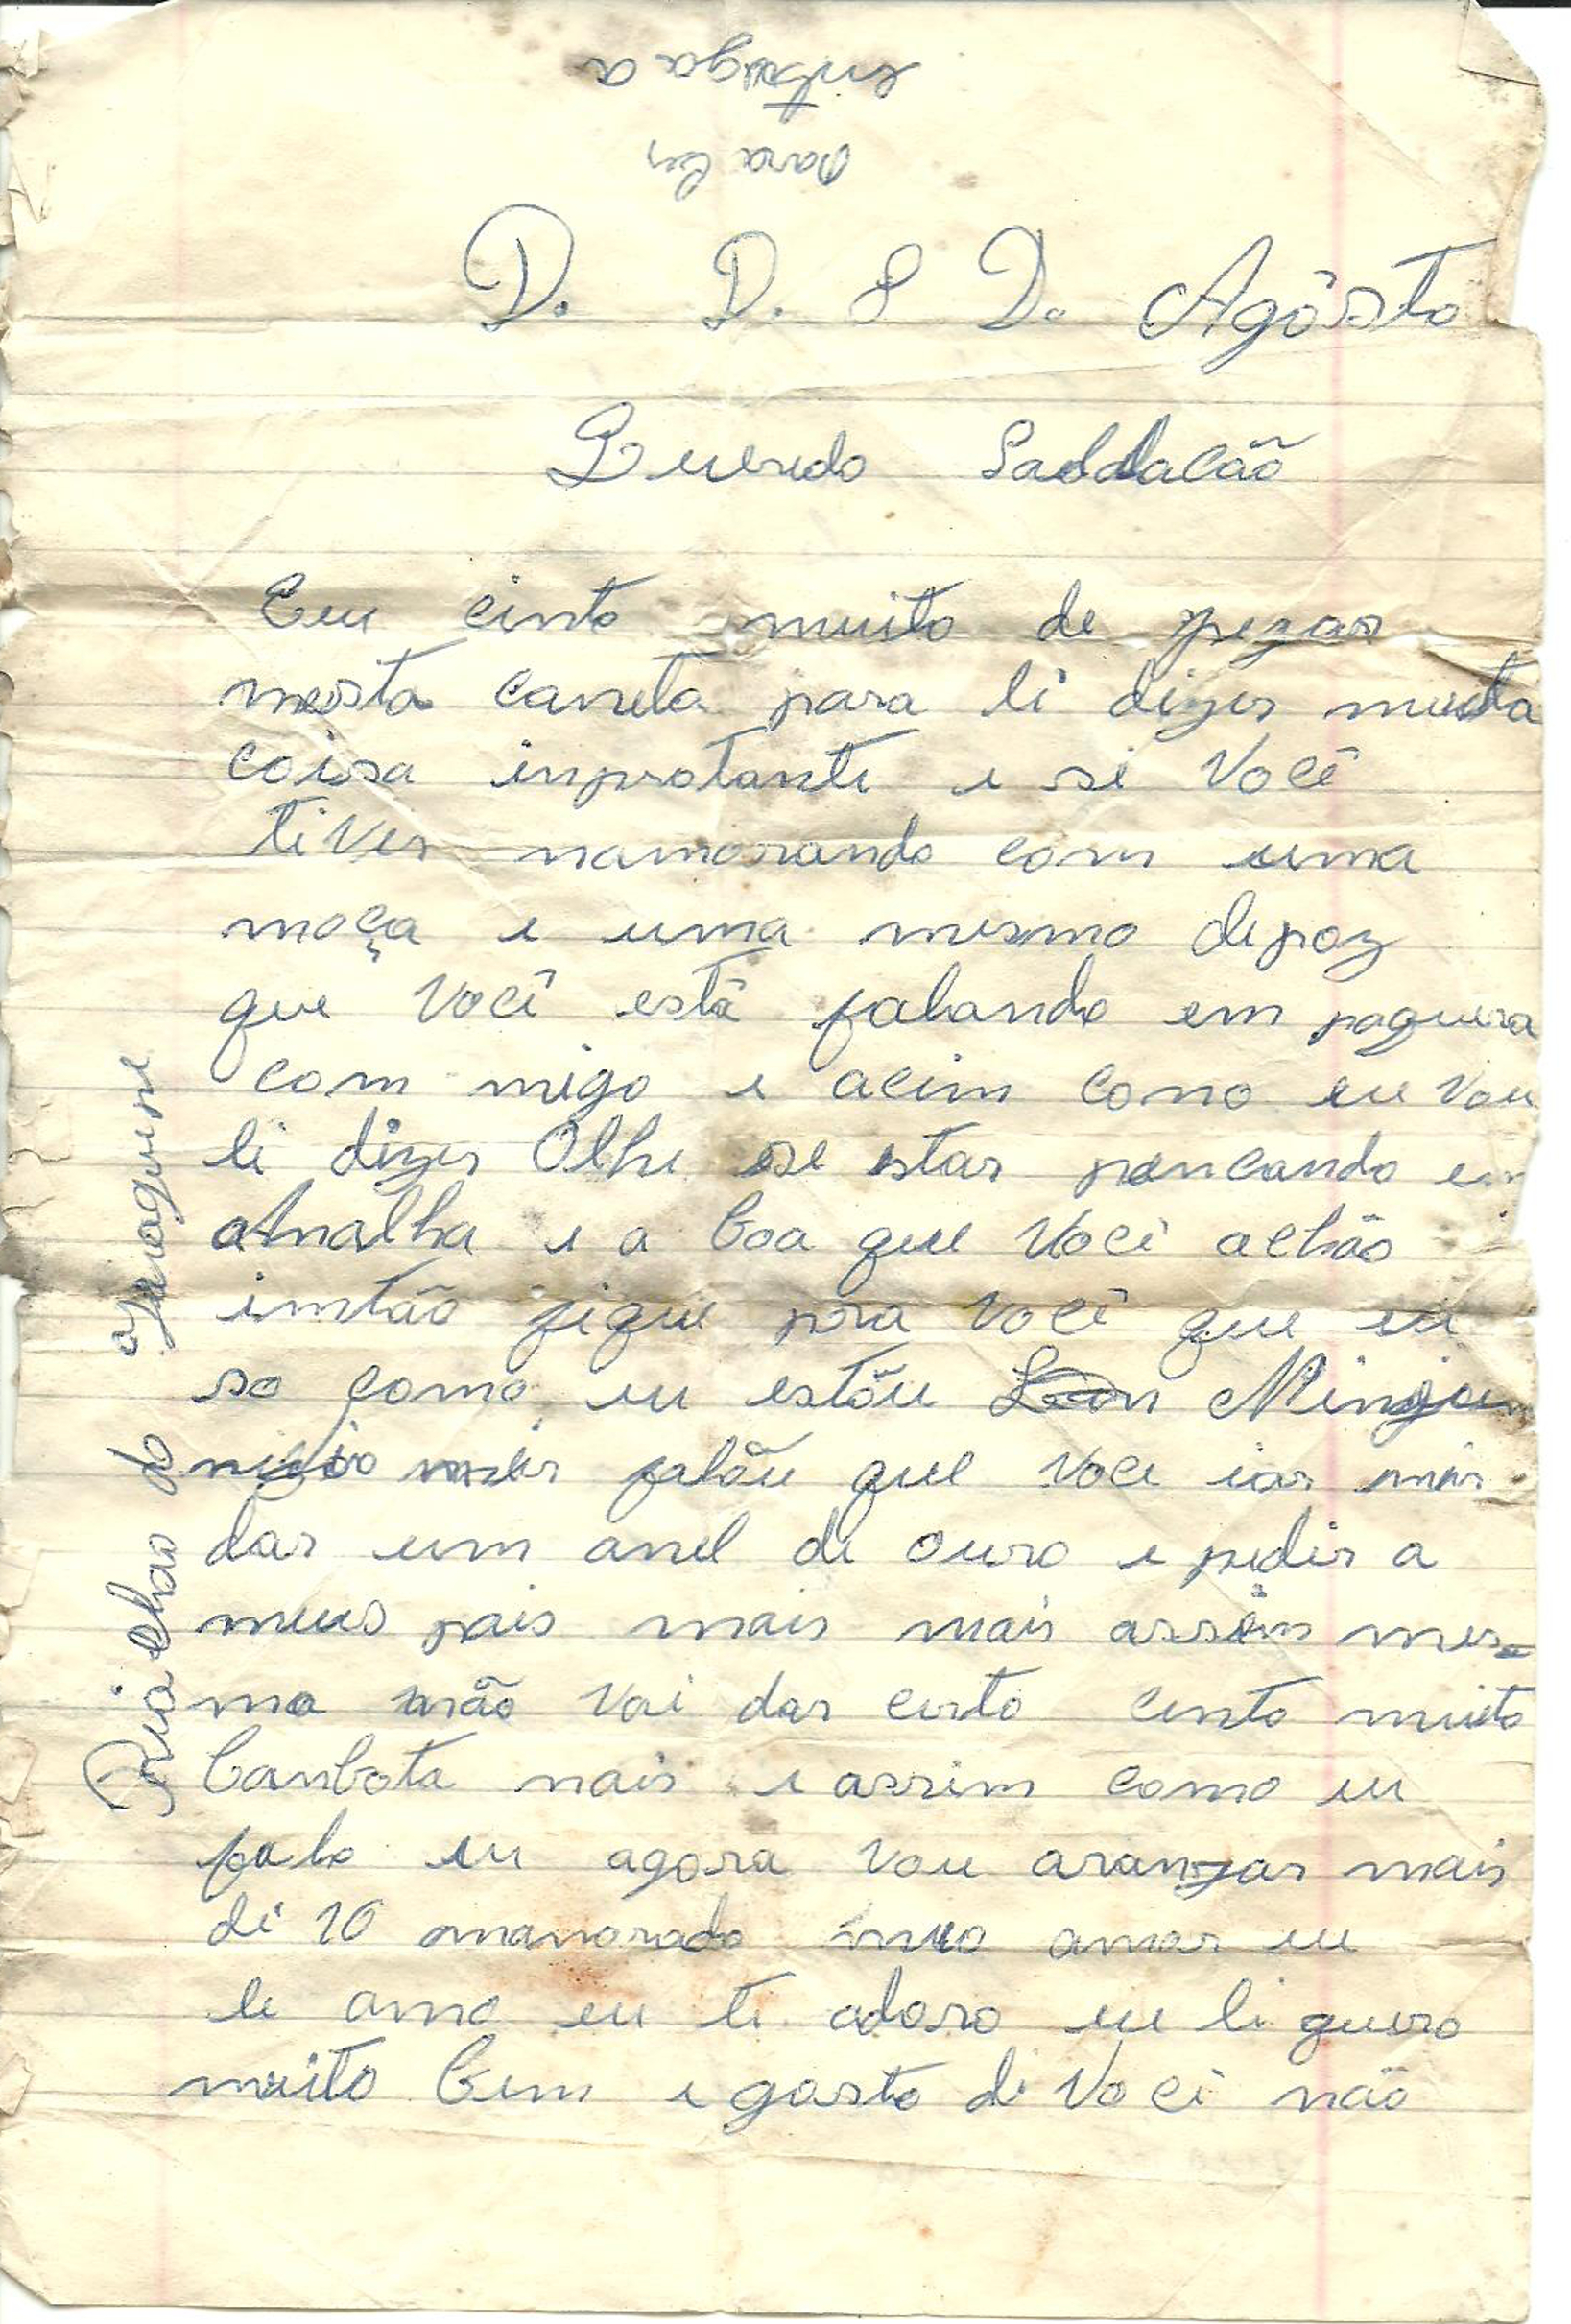 entrega a
para ler
D. D. 8 D. Agôsto
Queredo Saddacão
Eeu cinto muito de pegar
nesta caneta para li dizer muita
coisa inprotante e si Você
tiver namorando com uma
moça e uma mesmo depoz
que Você está falando em paquera
com migo e acim como eu vou
li dizer Olhe se estar pencando em
Analha e a boa que Você achão
intão fique pra Você que eu
so como eu estõu
falõu que Voce iar mir
dar um anel de ouro e pedir a
meus pais mais mais assim mes-
mo não Vai dar certo cinto muito
Canbota mais e assim como eu
falo eu agora Vou aranjar mais
di 10 manorado meu amor eu
le amo eu ti adoro eu li quero
muito bem e gosto di Você não
Riachão do Jacuipe